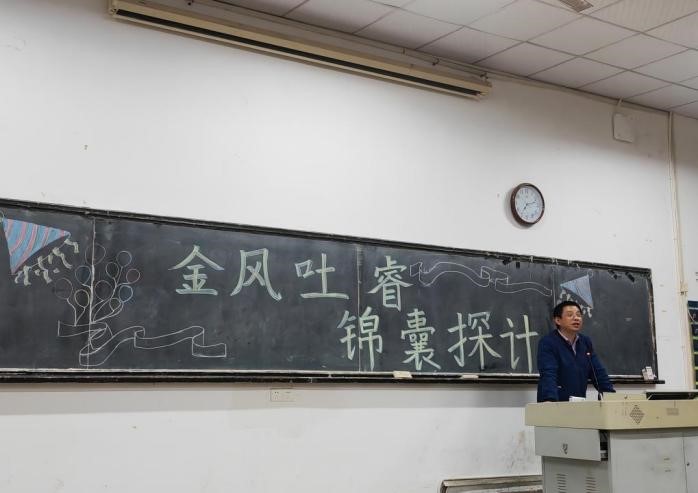 金风吐睿
锦囊探计